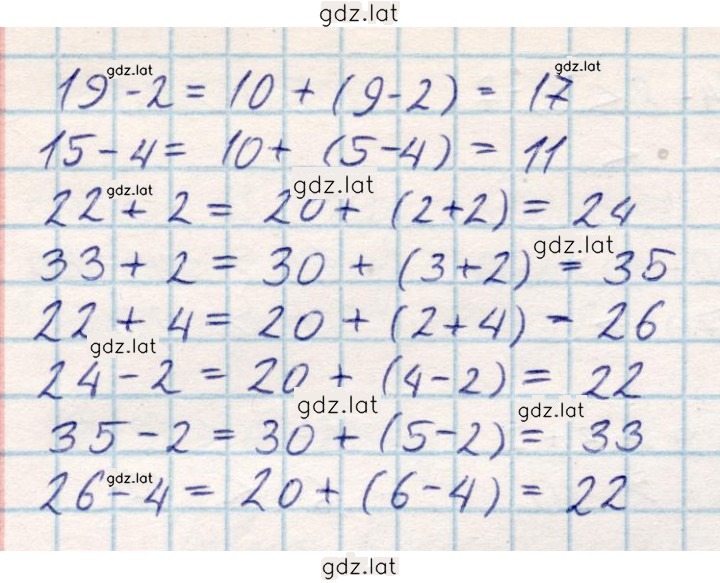 gdz.lat
gdz.lat gdz.lat
19 - 2 = 10 + (9 - 2) = 17
15 - 4 = 10 + (5 - 4) = 11
gdz.lat gdz.lat
22 + 2 = 20 + (2 + 2) = 24
gdz.lat
33 + 2 = 30 + (3 + 2) = 35
22 + 4 = 20 + (2 + 4) - 26
gdz.lat
24 - 2 = 20 + (4 - 2) = 22
gdz.lat gdz.lat
35 - 2 = 30 + (5 - 2) = 33
gdz.lat
26 - 4 = 20 + (6 - 4) = 22
gdz.lat